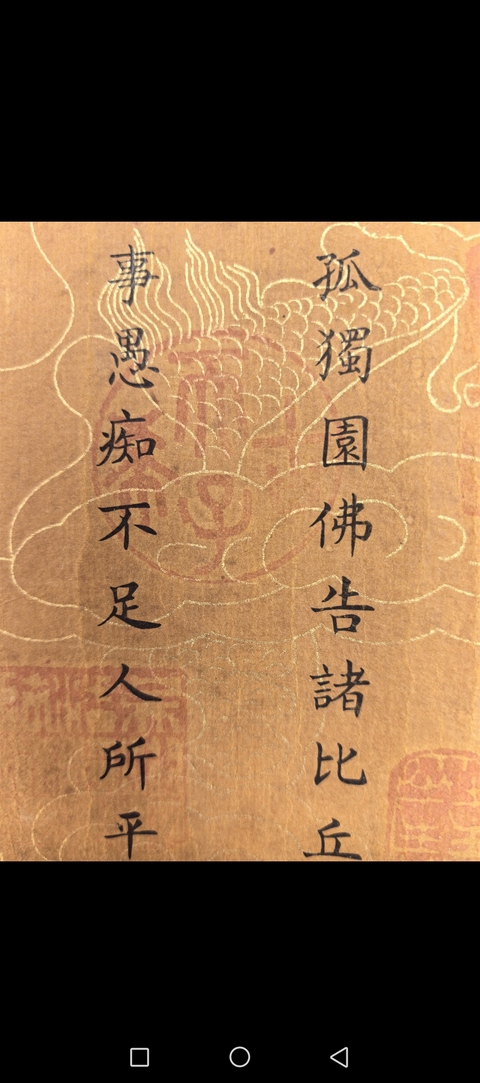 孤獨園佛告諸比丘
事愚痴不足人所平